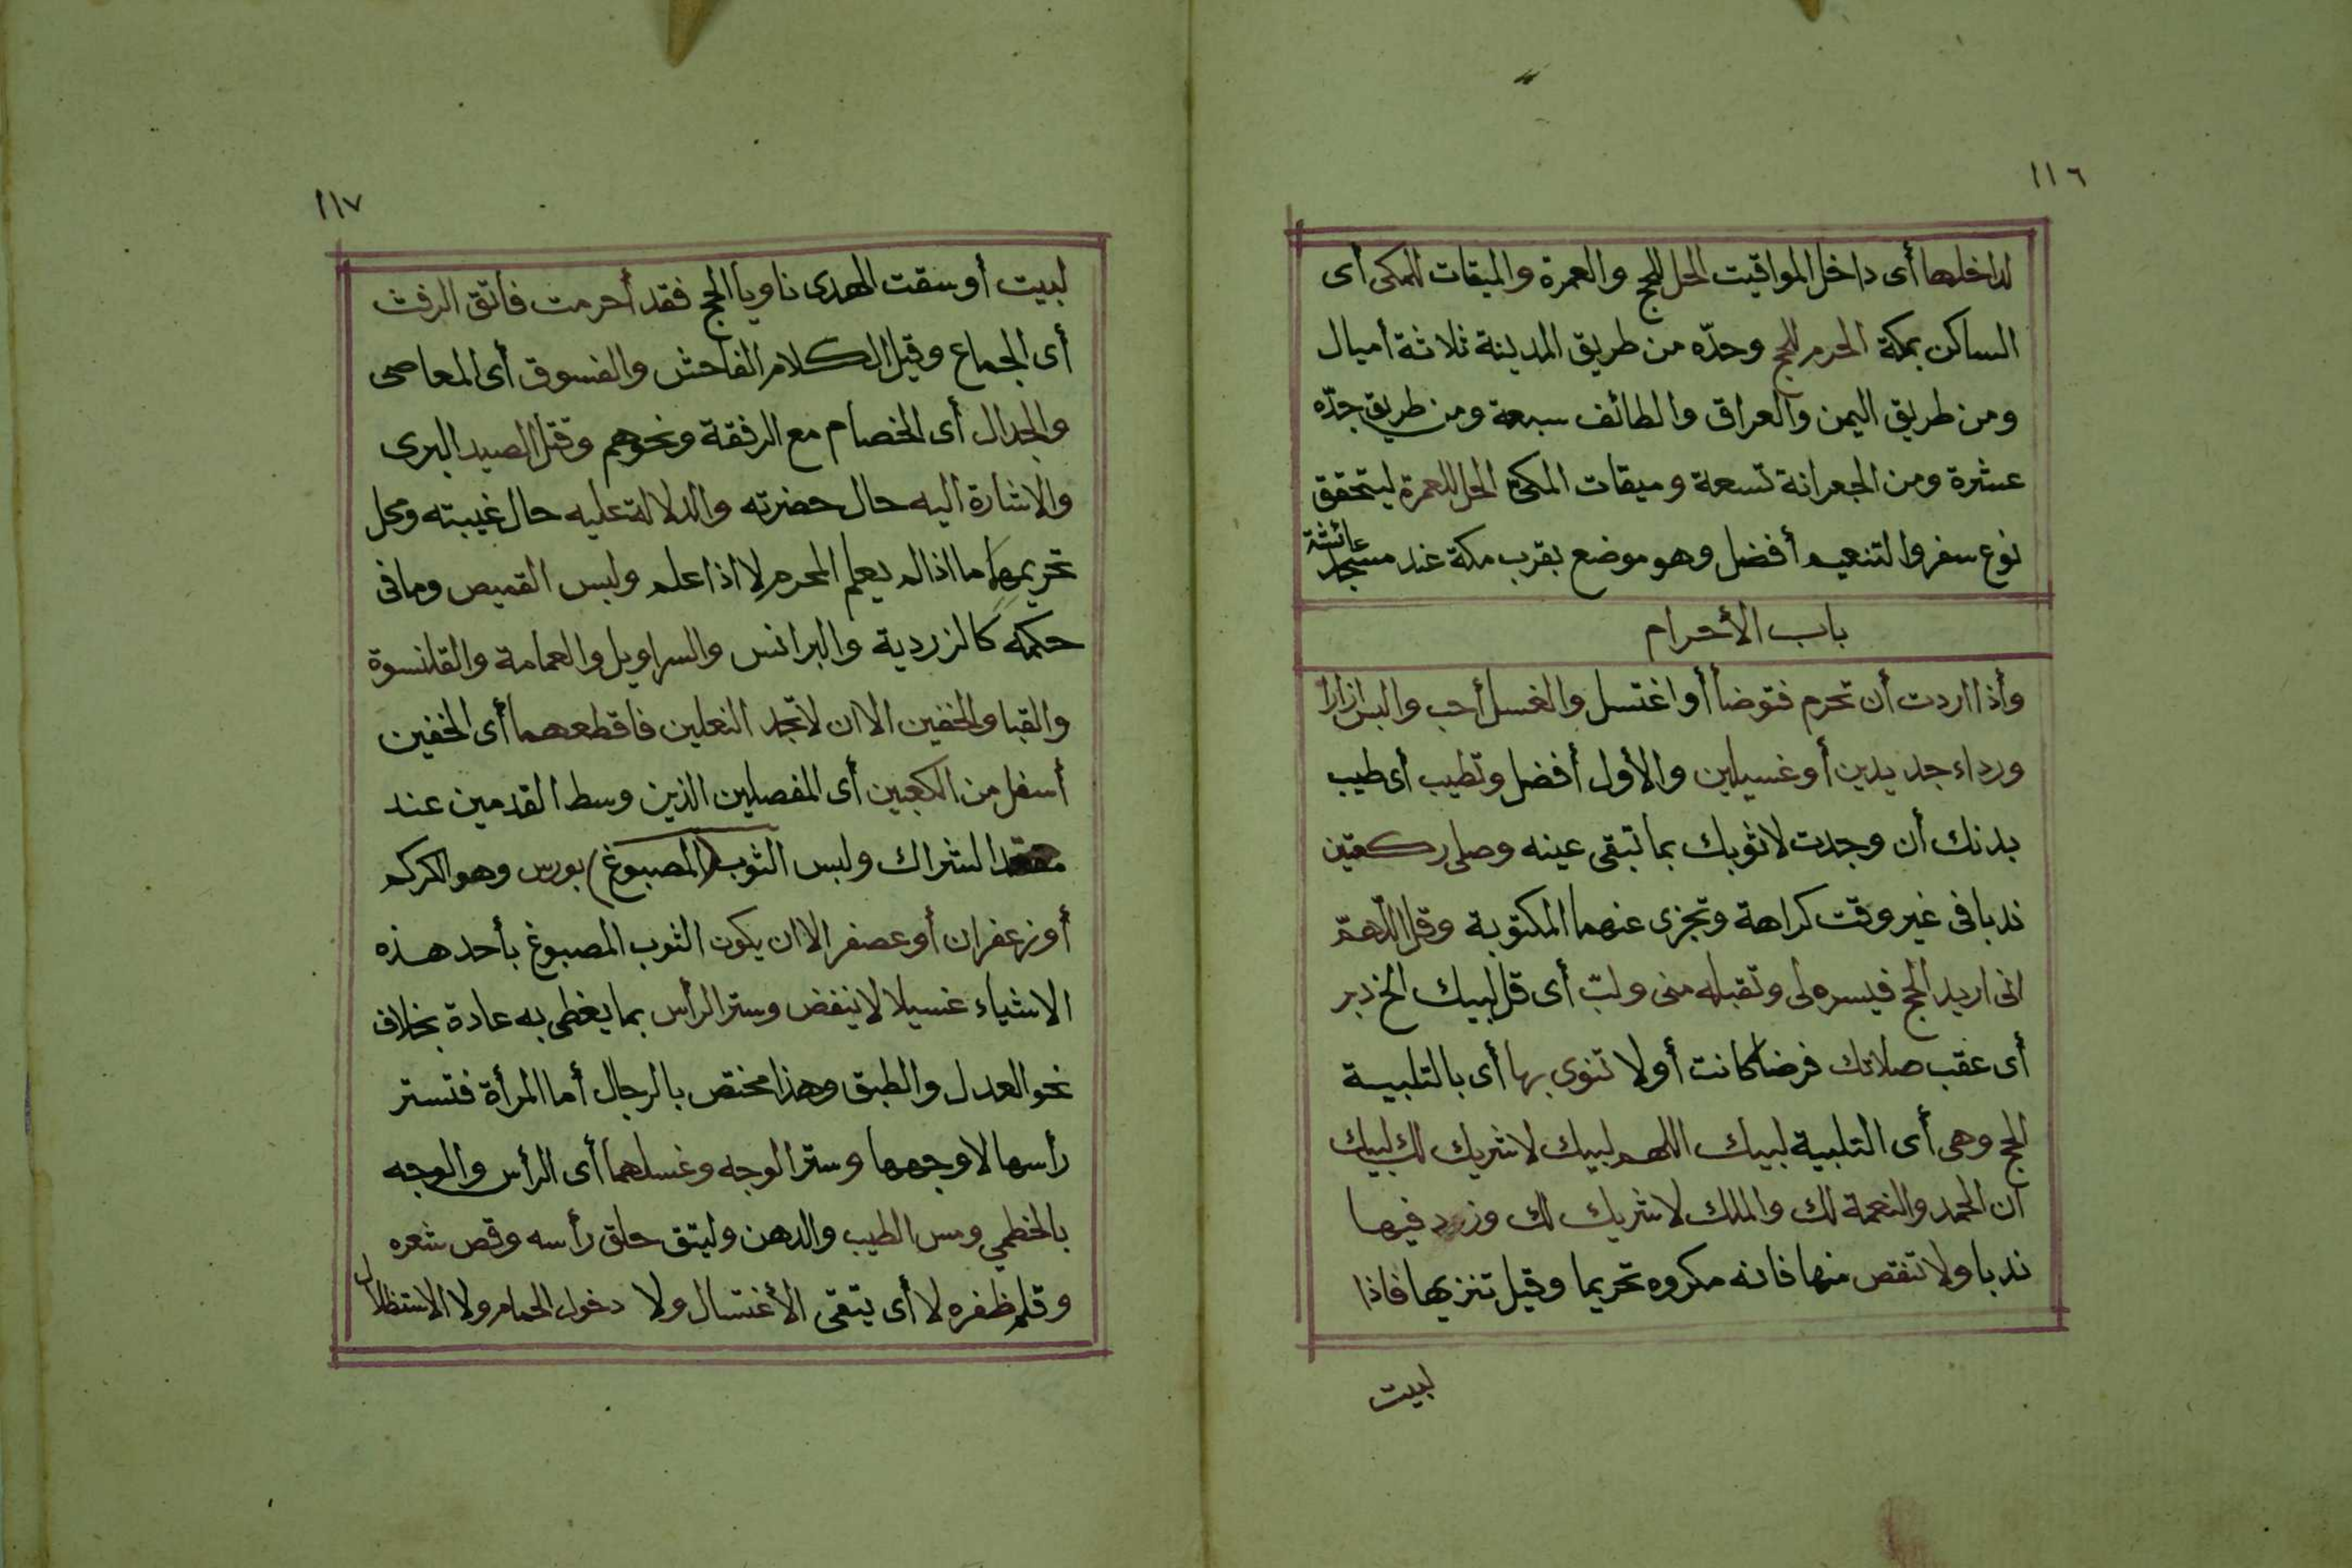 ١١٦
لداخلها أى داخل المواقيت الحل للحج والعمرة والميقات للمكى أى
الساكن بمكة الحرم للحج وحدّه من طريق المدينة ثلاثة أميال
ومن طريق اليمن والعراق والطائف سبعة ومن طريق جدّه
عشرة ومن الجعرانة تسعة وميقات المكى الحل للعمرة ليتحقق
نوع سفر والتنعيم أفضل وهو موضع بقرب مكة عند مسجد عائشة
باب الأحرام
وأذا اردت أن تحرم فتوضأ أو اغتسل والغسل أحب والبس ازارا
ورداء جديدين أو غسيلين والأول أفضل وتطيب أى طيب
بدنك أن وجدت لا ثوبك بما تبقى عينه وصلى ركعتين
ندبا فى غير وقت كراهة وتجزى عنهما المكتوبة وقل اللّهمّ
انى اريد الحج فيسره لى وتقبله منى ولبّ أى قل لبيك الخ دبر
أى عقب صلاتك فرضا كانت أولا تنوى بها أى بالتلبية
الحج وهى أى التلبية لبيك اللهم لبيك لا شريك لك لبيك
ان الحمد والنعمة لك والملك لا شريك لك وزد فيها
ندبا ولا تنقص منها فانه مكروه تحريما وقيل تنزيها فاذا
لبيت
١١٧
لبيت أو سقت الهدى ناويا الحج فقد أحرمت فاتق الرفث
أى الجماع وقيل الكلام الفاحش والفسوق أى المعاصى
والجدال أى الخصام مع الرفقة ونحوهم وقتل الصيد البرى
والاشارة اليه حال حضرته والدلالة عليه حال غيبته ومحل
تحريمها ما اذا لم يعلم المحرم لا اذا علم ولبس القميص وما فى
حكمه كالزردية والبرانس والسراويل والعمامة والقلنسوة
والقبا والخفين الا ان لا تجد النعلين فاقطعهما أى الخفين
أسفل من الكعبين أى المفصلين الذين وسط القدمين عند
معقد الشراك ولبس الثوب (المصبوغ) بورس وهو الكركم
أو زعفران أو عصفر الا ان يكون الثوب المصبوغ بأحد هذه
الاشياء غسيلا لا ينفض وستر الرأس بما يغطى به عادة بخلاف
نحو العدل والطبق وهذا مختص بالرجال أما المرأة فتستر
رأسها لا وجهها وستر الوجه وغسلهما أى الرأس والوجه
بالخطمي ومس الطيب والدهن وليتق حلق رأسه وقص شعره
وقلم ظفره لا أى يتقى الأغتسال ولا دخول الحمام ولا الاستظلال